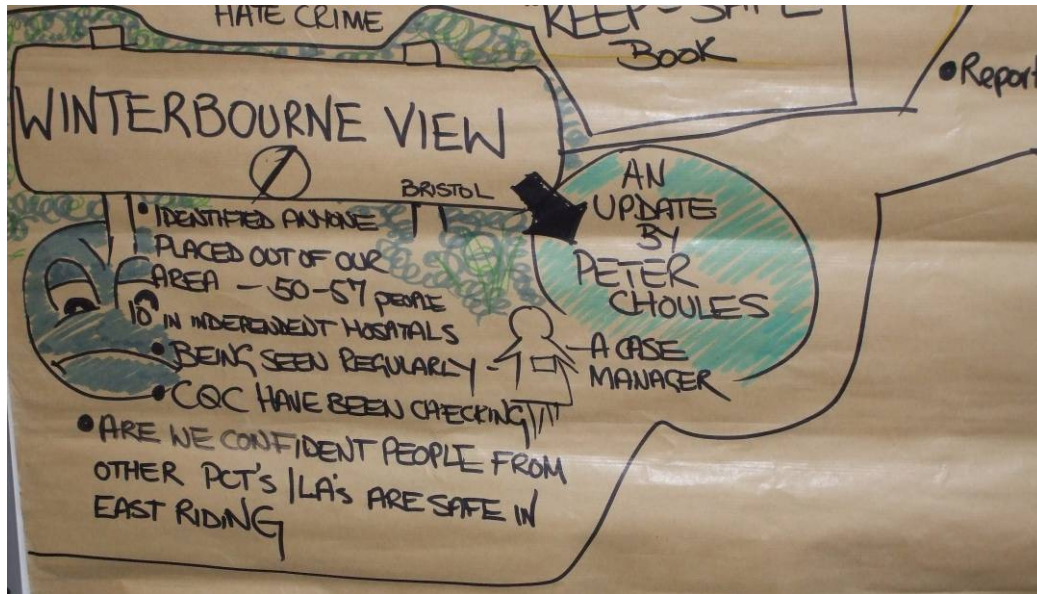 HATE CRIME
KEEP-SAFE
BOOK
• Report
WINTERBOURNE VIEW
BRISTOL
AN
UPDATE
BY
PETER
CHOULES
- A CASE
MANAGER
• IDENTIFIED ANYONE
PLACED OUT OF OUR
AREA - 50-57 PEOPLE
10 IN INDEPENDENT HOSPITALS
• BEING SEEN REGULARLY -
• CQC HAVE BEEN CHECKING
• ARE WE CONFIDENT PEOPLE FROM
OTHER PCT'S / LA'S ARE SAFE IN
EAST RIDING